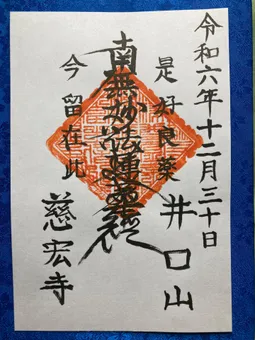 令和六年十二月三十日
井口山
是好良薬
南無妙法蓮華経
今留在此
慈宏寺